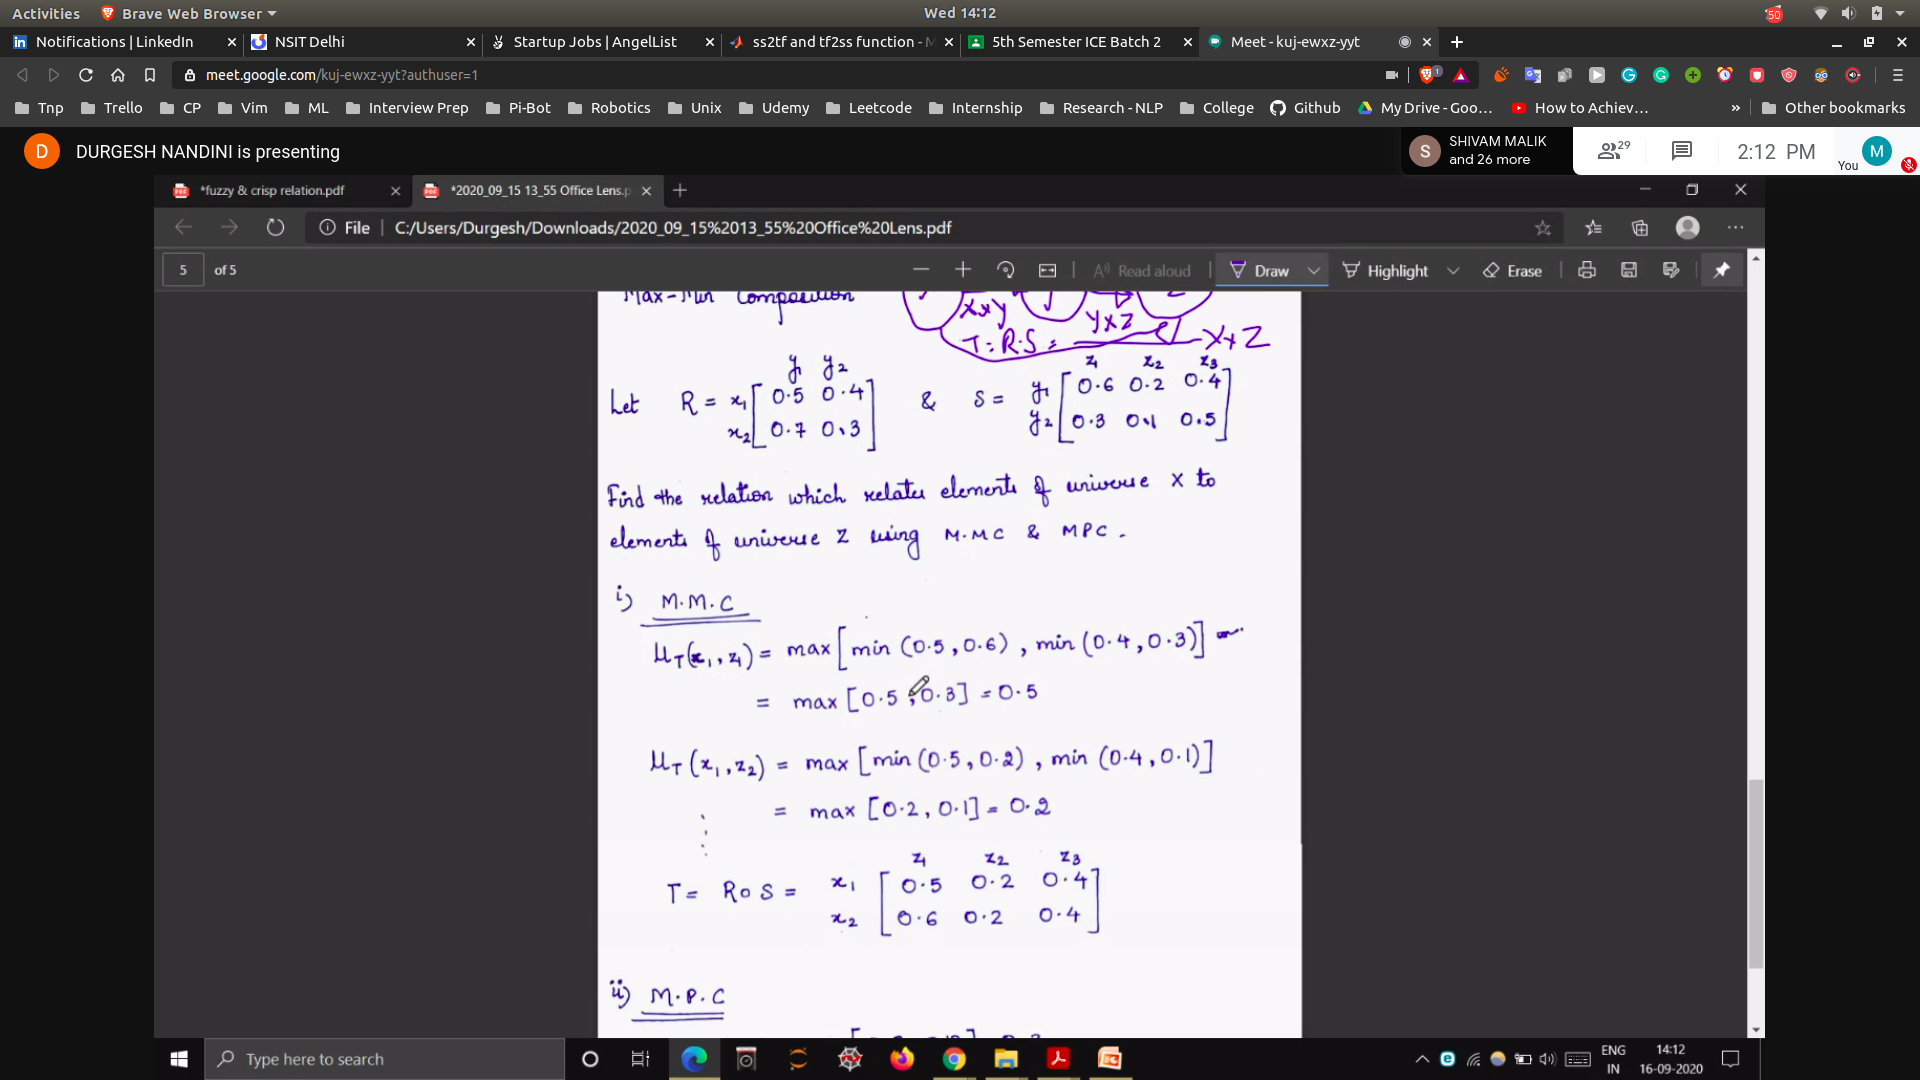 Activities Brave Web Browser Wed 14:12 50
Notifications | LinkedIn NSIT Delhi Startup Jobs | AngelList ss2tf and tf2ss function - M 5th Semester ICE Batch 2 Meet - kuj-ewxz-yyt
meet.google.com/kuj-ewxz-yyt?authuser=1 1
Tnp Trello CP Vim ML Interview Prep Pi-Bot Robotics Unix Udemy Leetcode Internship Research - NLP College Github My Drive - Goo... How to Achiev... » Other bookmarks
D DURGESH NANDINI is presenting
S SHIVAM MALIK
and 26 more
29 2:12 PM You M
*fuzzy & crisp relation.pdf *2020_09_15 13_55 Office Lens.p
File C:/Users/Durgesh/Downloads/2020_09_15%2013_55%20Office%20Lens.pdf
5 of 5 Read aloud Draw Highlight Erase
Max-Min Composition
X×Y Y×Z
T = R·S = X×Z
y1 y2 z1 z2 z3
Let R = x1 [ 0.5 0.4 ] & S = y1 [ 0.6 0.2 0.4 ]
x2 [ 0.7 0.3 ] y2 [ 0.3 0.1 0.5 ]
Find the relation which relates elements of universe X to
elements of universe Z using M.MC & MPC.
i) M.M.C
μT(x1, z1) = max [min (0.5, 0.6), min (0.4, 0.3)]
= max [0.5, 0.3] = 0.5
μT (x1, z2) = max [min (0.5, 0.2), min (0.4, 0.1)]
= max [0.2, 0.1] = 0.2
z1 z2 z3
T = R∘S = x1 [ 0.5 0.2 0.4 ]
x2 [ 0.6 0.2 0.4 ]
ii) M.P.C
Type here to search ENG 14:12
IN 16-09-2020